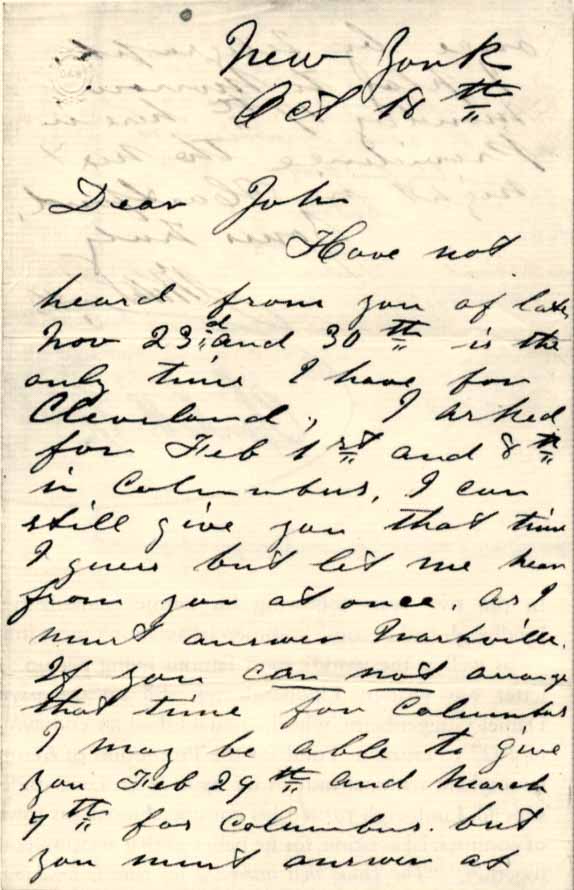 New York
Oct 18th
Dear John
Have not
heard from you of late,
Nov 23d and 30th is the
only time I have for
Cleveland, I asked
for Feb 1st and 8th
in Columbus, I can
still give you that time
I guess but let me hear
from you at once. as I
must answer Nashville.
If you can not arrange
that time for Columbus
I may be able to give
you Feb 29th and March
7th for Columbus. but
you must answer at